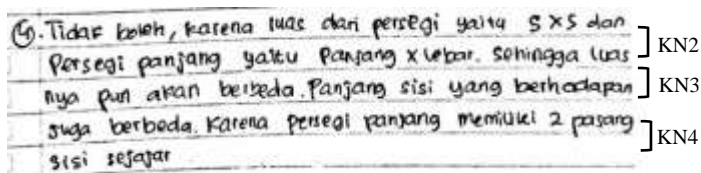 4. Tidak boleh, karena luas dari persegi yaitu S x S dan
Persegi panjang yaitu Panjang x lebar. Sehingga luas
KN2
nya pun akan berbeda. Panjang sisi yang berhadapan
KN3
juga berbeda. Karena persegi panjang memiliki 2 pasang
KN4
sisi sejajar